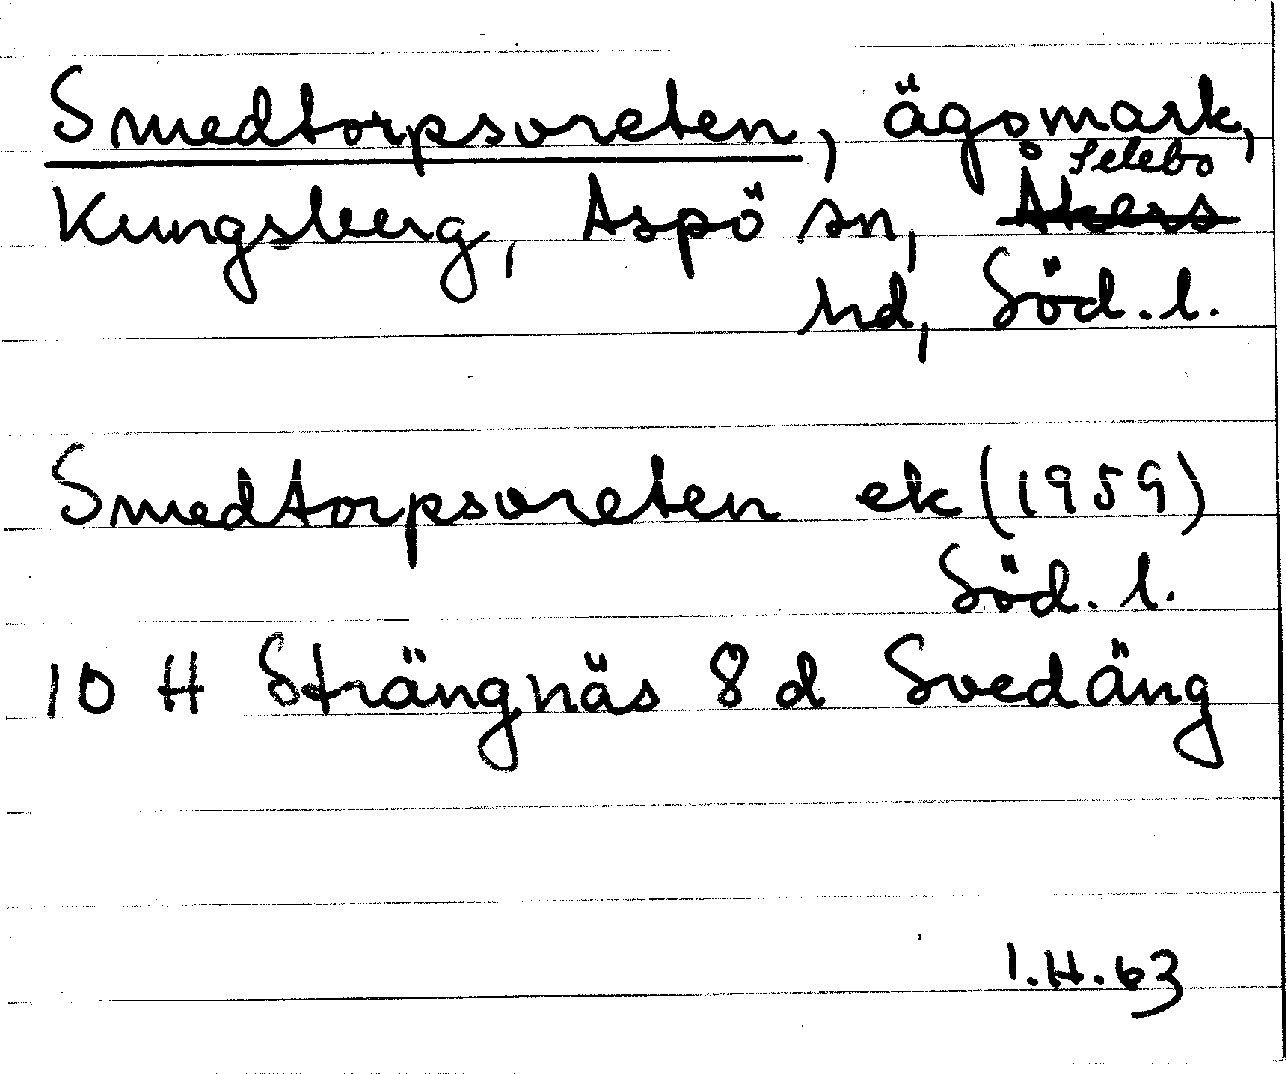 Smedtorpsvreten, ägomark,
Kungsberg, Aspö sn, Åkers Selebo
hd, Söd. l.
Smedtorpsvreten ek (1959)
Söd. l.
10 H Strängnäs 8 d Svedäng
I.H.63